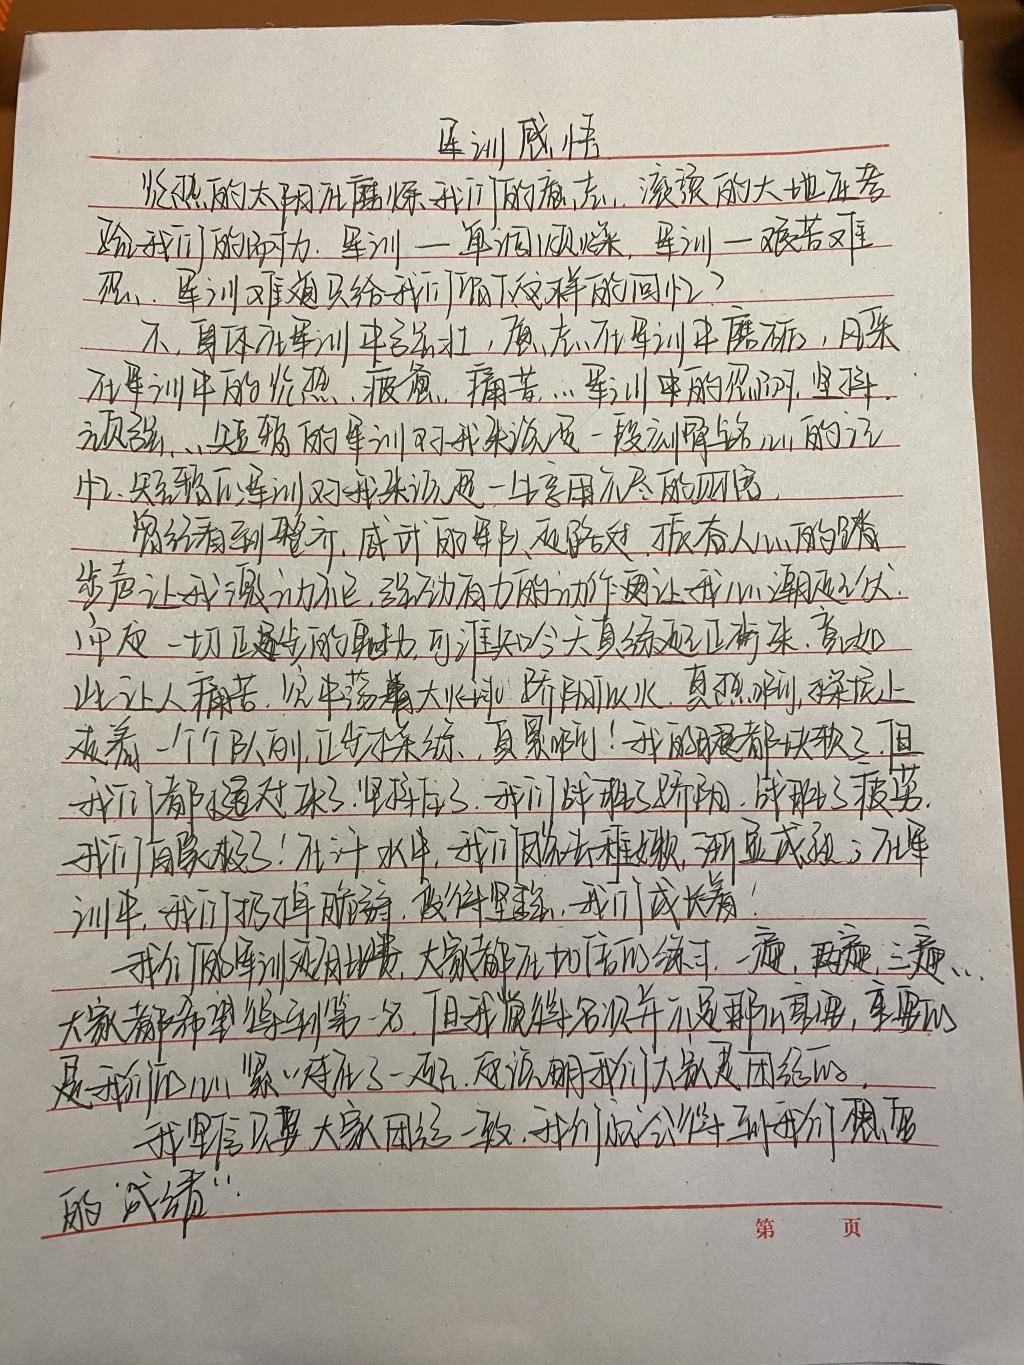 军训感悟
炎热的太阳在磨炼我们的意志，滚滚的大地在考
验我们的耐力。军训—单调烦燥，军训—艰苦难
忍、军训难道只给我们留下这样的回忆？
不，身体在军训中强壮，意志在军训中磨砺，风采
在军训中的炎热、疲惫、痛苦…军训中的忍耐，坚持，
顽强…短暂的军训对我来说是一段刻骨铭心的记
忆、短暂的军训对我来说是一生享用不尽的财富。
曾经看到整齐，威武的军队走过，振奋人心的踏
步声让我激动不已，强劲有力的动作更让我心潮起伏。
一切正步的魅力，可谁知今天真练起正步来，竟如
此让人痛苦。空中荡着大火球，骄阳似火，真热啊，操场上
走着一个个队列，正步来练、真累啊！我的腿都快软了，但
我们都挺过来了，坚持住了，我们战胜了骄阳，战胜了疲劳，
我们自豪极了！在汗水中，我们除去稚嫩，渐显成熟；在军
训中，我们扔掉脆弱，变得坚强，我们成长着！
我们的军训有比赛，大家都在加倍的练习，一遍，两遍，三遍…
大家都希望得到第一名，但我觉得名次并不是那么重要，重要的
是我们的心紧紧连在了一起，这说明我们大家是团结的。
我坚信只要大家团结一致，我们就会得到我们想要
的“成绩”。
第 页